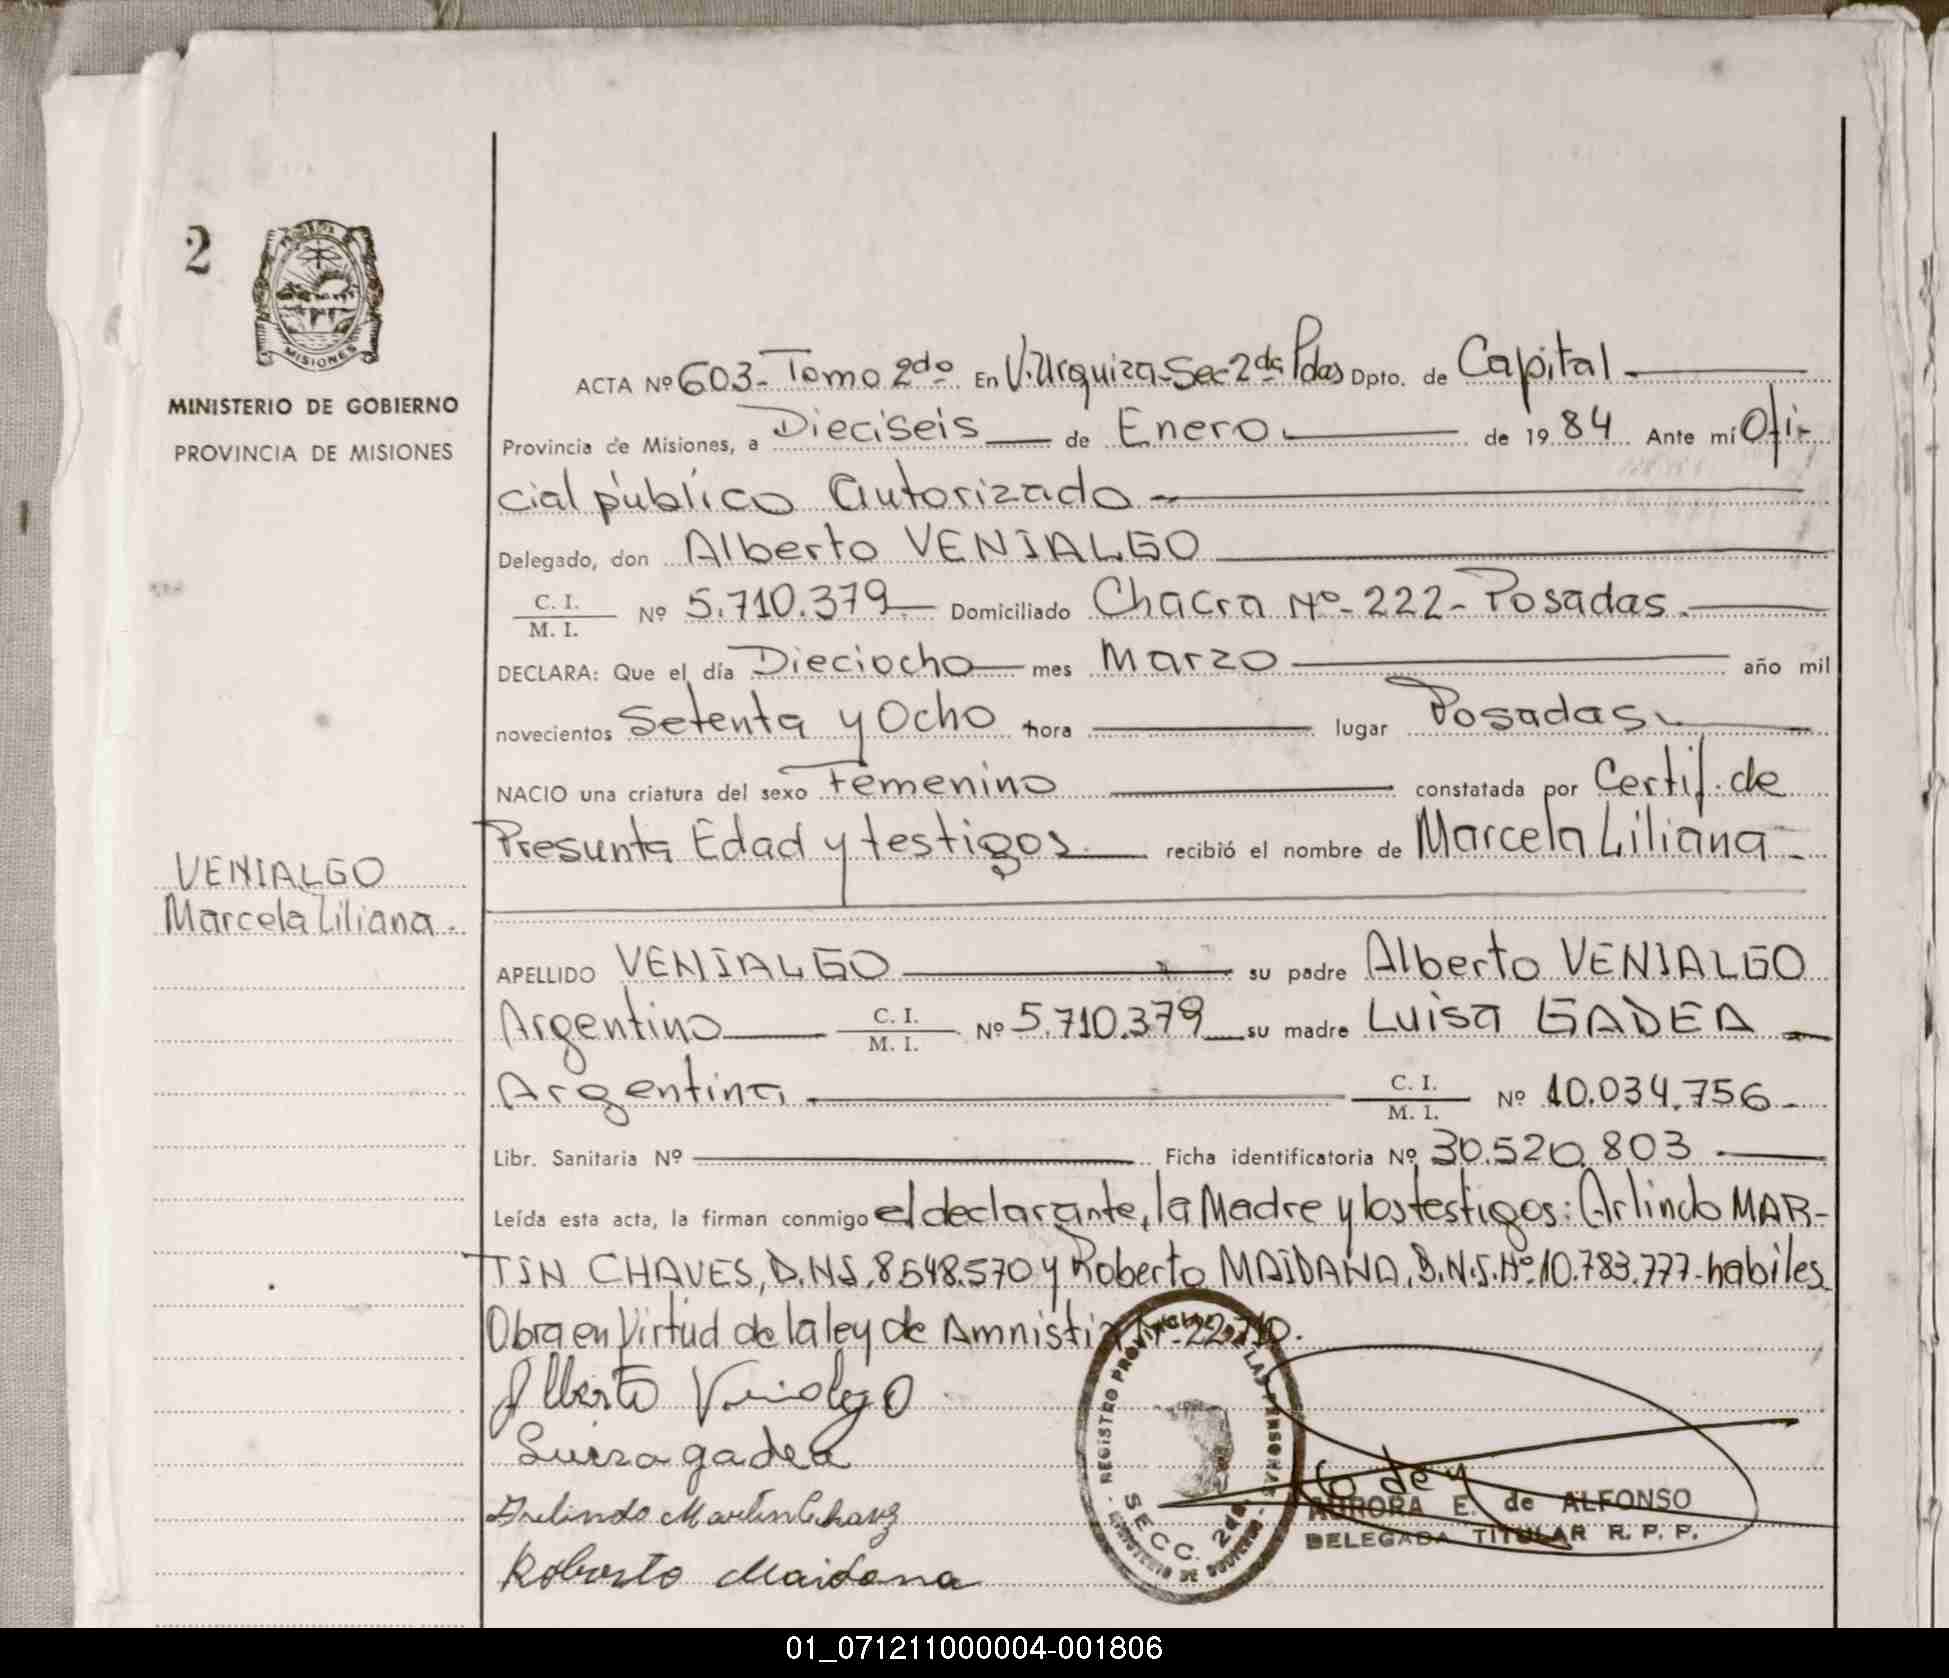 2
MISIONES
MINISTERIO DE GOBIERNO
PROVINCIA DE MISIONES
VENIALGO
Marcela Liliana.
ACTA Nº 603- Tomo 2do En V. Urquiza-Sec 2da Pdas Dpto. de Capital
Provincia de Misiones, a Dieciseis de Enero de 1984 Ante mí Ofi-
cial público autorizado
Delegado, don Alberto VENIALGO
C. I. / M. I. Nº 5.710.379 Domiciliado Chacra Nº-222-Posadas.
DECLARA: Que el día Dieciocho mes Marzo año mil
novecientos Setenta y Ocho hora lugar Posadas
NACIO una criatura del sexo Femenino constatada por Certif. de
Presunta Edad y testigos recibió el nombre de Marcela Liliana-
APELLIDO VENIALGO su padre Alberto VENIALGO
Argentino C. I. / M. I. Nº 5.710.379 su madre Luisa GADEA
Argentina C. I. / M. I. Nº 10.034.756-
Libr. Sanitaria Nº Ficha identificatoria Nº 30.520.803
Leída esta acta, la firman conmigo el declarante, la Madre y los testigos: Arlindo MAR-
TIN CHAVES, D.N.I. 8.548.570 y Roberto MAIDANA, D.N.I. Nº 10.783.777- habiles
Obra en Virtud de la ley de Amnistia Nº-22.710.
Alberto Venialgo
Luisa gadea
Arlindo Martin Chavez
Roberto Maidana
REGISTRO PROVINCIAL DE LAS PERSONAS
SECC. 2da
MINISTERIO DE GOBIERNO
AURORA E. de ALFONSO
DELEGADA TITULAR R. P. P.
01_071211000004-001806